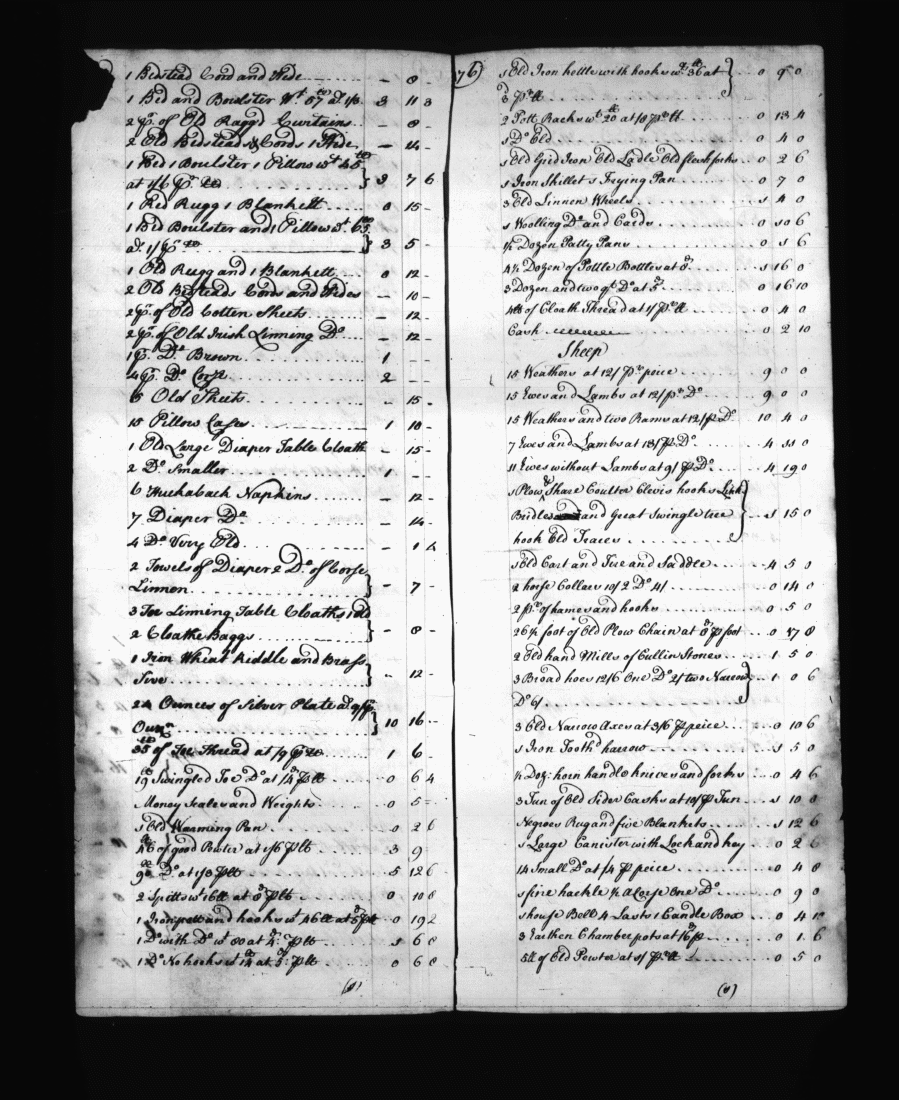 1 Bedstead Cord and Hide - 8 -
1 Bed and Boulster Wt. 57 lb at 1/3 3 11 3
2 pr. of Old Ragged Curtains - 8 -
2 Old Bedsteads & Cords 1 Hide - 14 -
1 Bed 1 Boulster 1 Pillow wt 45 lb
at 1/6 pr. lb 3 7 6
1 Red Rugg 1 Blankett 0 15 -
1 Bed Boulster and 1 Pillow wt. 65 lb
at. 1/ pr. lb 3 5 -
1 Old Rugg and 1 Blankett 0 12 -
2 Old Bedsteads Cords and Hides - 10 -
2 pr. of Old Cotten Sheets - 12 -
2 pr. of Old Irish Linning Do - 12 -
1 pr. Do. Brown 1 - -
4 pr. Do. Corse 2 - -
6 Old Sheets - 15 -
15 Pillow Cases 1 10 -
1 Old Large Diaper Table Cloath - 15 -
2 Do. Smaller 1 -
6 Huckaback Napkins - 12 -
7 Diaper Do - 14 -
4 Do. Very Old - 1 4
2 Towels of Diaper 2 Do. of Corse
Linnen - 7 -
3 Toe Linning Table Cloaths old
2 Cloathe Baggs - 8 -
1 Iron Wheat Riddle and Brass
Sive - 12 -
24 Ounces of Silver Plate at 9/ pr.
Ounce 10 16 -
35 lb of Toe Thread at /9 pr. lb 1 6
19 lb Swingled Toe Do. at /4d p lb 0 6 4
Money Scales and Weights 0 5 -
1 Old Warming Pan 0 2 6
46 lb of good Pewter at 1/6 p lb 3 9
90 lb Do. at 1/3 p lb 5 12 6
2 Spitts wt 16 lb at 8d p lb 0 10 8
1 Iron pott and hooks wt 46 lb at 5d p lb 0 19 2
1 Do. with Do. wt 80 at 4d. p lb 1 6 8
1 Do. No hooks wt 14 lb at 5d. p lb 0 6 8
76
1 Old Iron kettle with hooks wt. 36 lb at
3 pr lb 0 9 0
2 Pott Racks wt 20 lb at /8 pr lb 0 13 4
1 Do. Old 0 4 0
1 Old Grid Iron Old Ladle Old flesh forks 0 2 6
1 Iron Skillet 1 Frying Pan 0 7 0
3 Old Linnen Wheels 1 4 0
1 Woolling Do. and Cards 0 10 6
1/2 Dozen Patty Pans 0 1 6
4 1/2 Dozen of Pottle Bottles at 8d 1 16 0
3 Dozen and two qt. Do. at 5d 0 16 10
4 lb of Cloath Thread at 1/ pr lb 0 4 0
Cash 0 2 10
Sheep
15 Weathers at 12/ pr. peice 9 0 0
15 Ewes and Lambs at 12/ pr. Do 9 0 0
15 Weathers and two Rams at 12/ p Do 10 4 0
7 Ewes and Lambs at 13/ p Do 4 11 0
11 Ewes without Lambs at 9/ p Do 4 19 0
1 Plow & Share Coulter Clevis hooks Links
Bridle and Great Swingle tree
hook Old Traces 1 15 0
1 Old Cart and Tire and Saddle 4 5 0
2 horse Collars 10/ 2 Do. 4/ 0 14 0
2 pr. of hames and hooks 0 5 0
26 1/2 foot of Old Plow Chain at 8d p foot 0 17 8
2 Old hand Mills of Cullin Stones 1 5 0
3 Broad hoes 12/6 One Do. 2/ two Narrow
Do. 6/ 1 0 6
3 Old Narrow Axes at 3/6 p peice 0 10 6
1 Iron Tooth'd harrow 1 5 0
1/2 Doz: horn handle knives and forks 0 4 6
3 Tun of Old Sider Casks at 10/ p Tun 1 10 0
Negroes Rug and five Blankets 1 12 6
1 Large Canister with Lock and key 0 2 6
14 Small Do. at /4 p peice 0 4 8
1 fine hackle 1/2 a Corse One Do. 0 9 0
1 house Bell 4 Lasts 1 Candle Box 0 4 10
3 Earthen Chamber pots at /6d p 0 1 6
5 lb of Old Pewter at 1/ pr lb 0 5 0